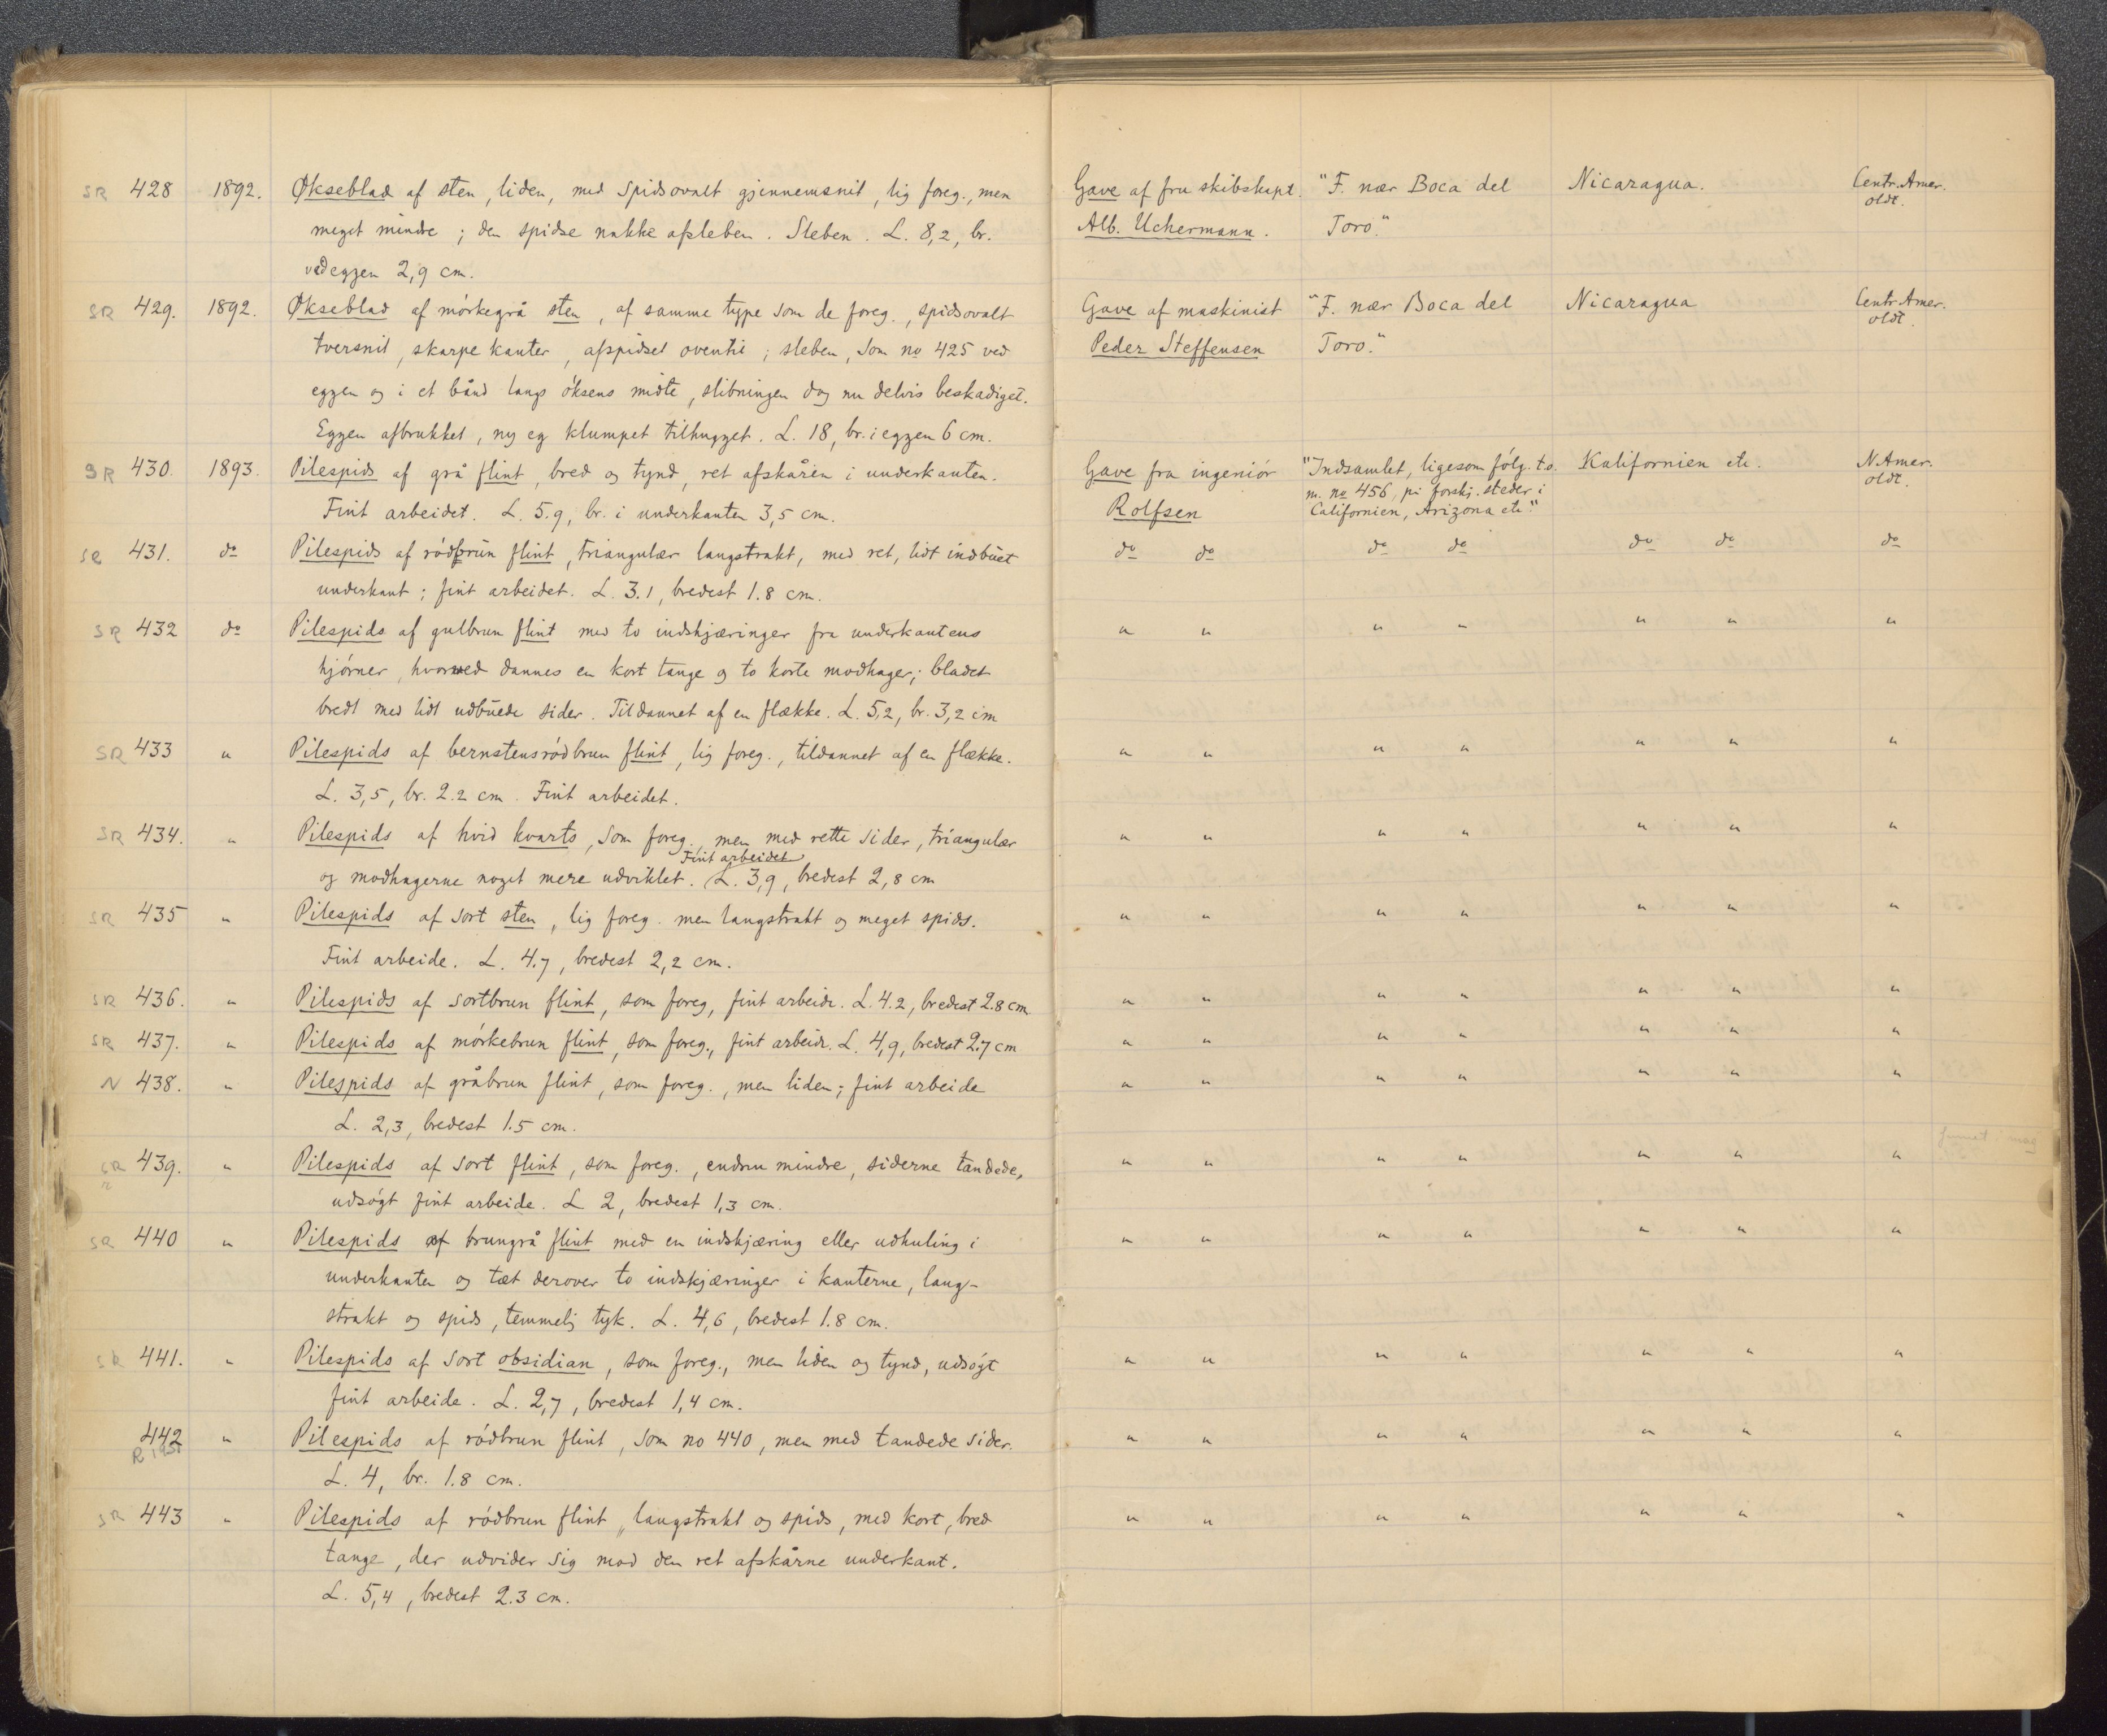 SR 428 1892. Økseblad af sten, liden, med spidsovalt gjennemsnit, lig foreg., men Gave af fru skibskapt. "F. nær Boca del Nicaragua. Centr. Amer.
meget mindre; den spidse nakke afsleben. Sleben. L. 8,2, br. Alb. Uchermann. Toro." oldt.
ved eggen 2,9 cm.
SR 429. 1892. Økseblad af mörkegrå sten, af samme type som de foreg., spidsovalt Gave af maskinist "F. nær Boca del Nicaragua Centr. Amer.
tversnit, skarpe kanter, afspidset oventil; sleben, som no 425 ved Peder Steffensen Toro." oldt.
eggen og i et bånd langs öksens midte, slibningen dog nu delvis beskadiget.
Eggen afbrukket, ny eg klumpet tilhugget. L. 18, br. i eggen 6 cm.
SR 430. 1893. Pilespids af grå flint, bred og tynd, ret afskåren i underkanten. Gave fra ingeniör "Indsamlet, ligesom fölg. t.o. Kalifornien etc. N. Amer.
m. no 456, på forskj. steder i oldt.
Fint arbeidet. L. 5.9, br. i underkanten 3,5 cm. Rolfsen Californien, Arizona etc."
SR 431. do Pilespids af rödbrun flint, triangulær langstrakt, med ret, lidt indbuet do do do do do do do
underkant; fint arbeidet. L. 3.1, bredest 1.8 cm.
SR 432 do Pilespids af gulbrun flint med to indskjæringer fra underkantens " " " " " " "
hjörner, hvorved dannes en kort tange og to korte modhager; bladet
bredt med lidt udbuede sider. Tildannet af en flække. L. 5,2, br. 3,2 cm
SR 433 " Pilespids af bernstensrödbrun flint, lig foreg., tildannet af en flække. " " " " " " "
L. 3,5, br. 2.2 cm. Fint arbeidet.
SR 434. " Pilespids af hvid kvarts, som foreg., men med rette sider, triangulær " " " " " " "
Fint arbeidet
og modhagerne noget mere udviklet. L. 3,9, bredest 2,8 cm
SR 435 " Pilespids af sort sten, lig foreg. men langstrakt og meget spids. " " " " " " "
Fint arbeide. L. 4.7, bredest 2,2 cm.
SR 436. " Pilespids af sortbrun flint, som foreg, fint arbeide. L. 4.2, bredest 2.8 cm " " " " " " "
SR 437. " Pilespids af mörkebrun flint, som foreg., fint arbeide. L. 4,9, bredest 2.7 cm " " " " " " "
N 438. " Pilespids af gråbrun flint, som foreg., men liden; fint arbeide " " " " " " "
L. 2,3, bredest 1.5 cm.
SR 439. " Pilespids af sort flint, som foreg., endnu mindre, siderne tandede, " " " " " " "
udsögt fint arbeide. L 2, bredest 1,3 cm.
SR 440 " Pilespids af brungrå flint med en indskjæring eller udhuling i " " " " " " "
underkanten og tæt derover to indskjæringer i kanterne, lang-
strakt og spids, temmelig tyk. L. 4,6, bredest 1.8 cm.
SR 441. " Pilespids af sort obsidian, som foreg., men liden og tynd, udsögt " " " " " " "
fint arbeide. L. 2,7, bredest 1,4 cm.
442 " Pilespids af rödbrun flint, som no 440, men med tandede sider. " " " " " " "
L. 4, br. 1.8 cm.
SR 443 " Pilespids af rödbrun flint, langstrakt og spids, med kort, bred " " " " " " "
tange, der udvider sig mod den ret afskårne underkant.
L. 5,4, bredest 2.3 cm.